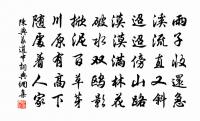 雨子收還急
溪流直又斜
迢迢傍山路
漠漠滿林花
破水雙鷗影
掀泥百草芽
川原有高下
隨處著人家
陳與義道中詩